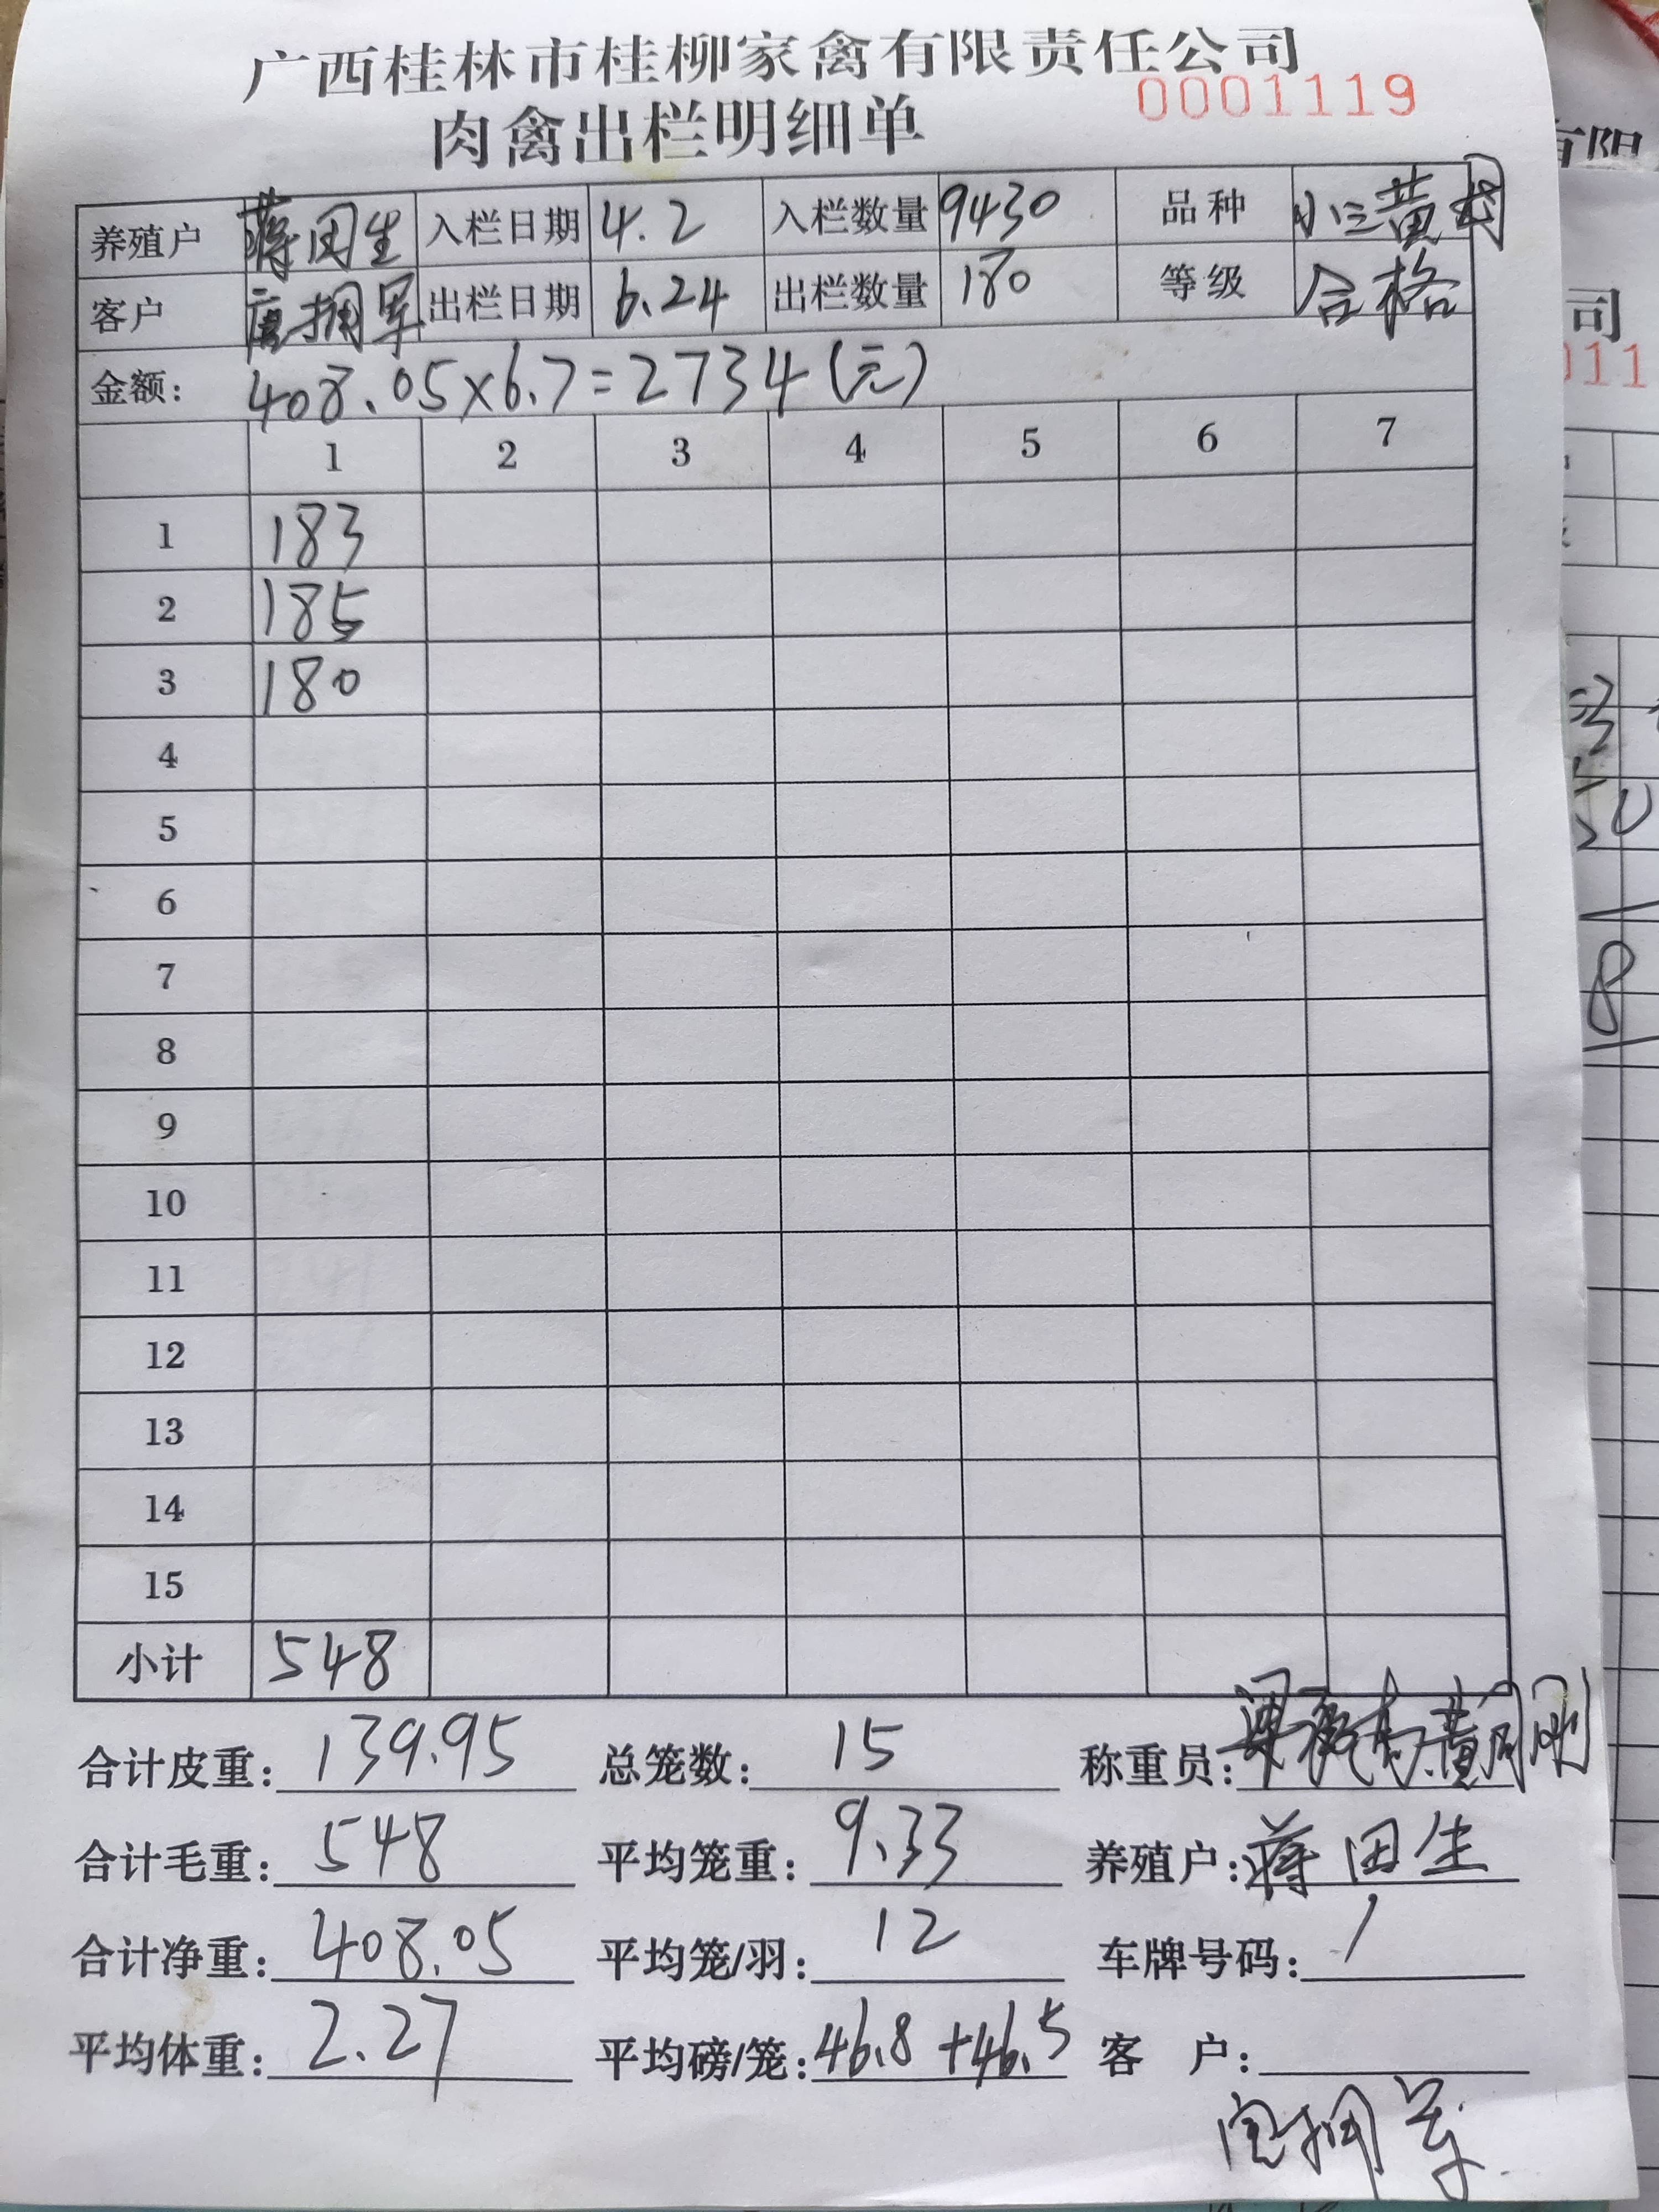 广西桂林市桂柳家禽有限责任公司
肉禽出栏明细单 0001119
养殖户 蒋田生 入栏日期 4.2 入栏数量 9430 品种 小三黄
客户 唐拥军 出栏日期 6.24 出栏数量 180 等级 合格
金额: 408.05×6.7=2734(元)
1 2 3 4 5 6 7
1 183
2 185
3 180
4
5
6
7
8
9
10
11
12
13
14
15
小计 548
合计皮重: 139.95 总笼数: 15 称重员:
合计毛重: 548 平均笼重: 9.33 养殖户: 蒋田生
合计净重: 408.05 平均笼/羽: 12 车牌号码: /
平均体重: 2.27 平均磅/笼: 46.8+46.5 客 户:
唐拥军
有限
司
011